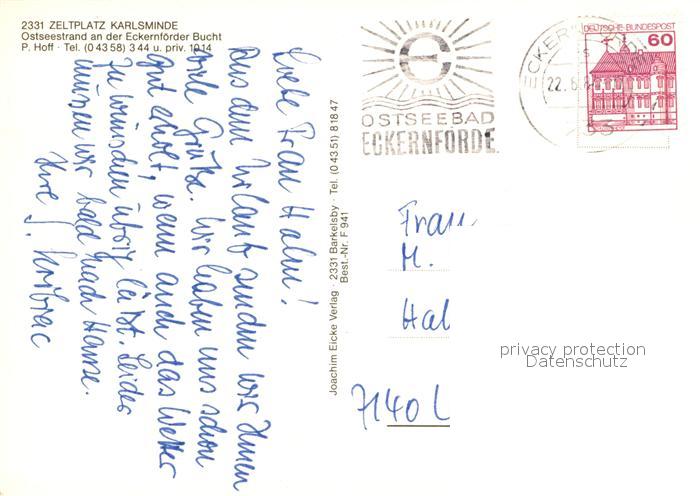 2331 ZELTPLATZ KARLSMINDE
Ostseestrand an der Eckernförder Bucht
P. Hoff · Tel. (0 43 58) 3 44 u. priv. 10 14
Liebe Frau Halm!
Aus dem Urlaub senden wir Ihnen
viele Grüße. Wir haben uns schon
gut erholt, wenn auch das Wetter
zu wünschen übrig läßt. Leider
müssen wir bald nach Hause.
Ihre
Joachim Eicke Verlag · 2331 Barkelsby · Tel. (0 43 51) 8 18 47
Best.-Nr. F 941
OSTSEEBAD
ECKERNFÖRDE
22.6.
DEUTSCHE BUNDESPOST
60
Frau
M.
Hal
7140 L
privacy protection
Datenschutz